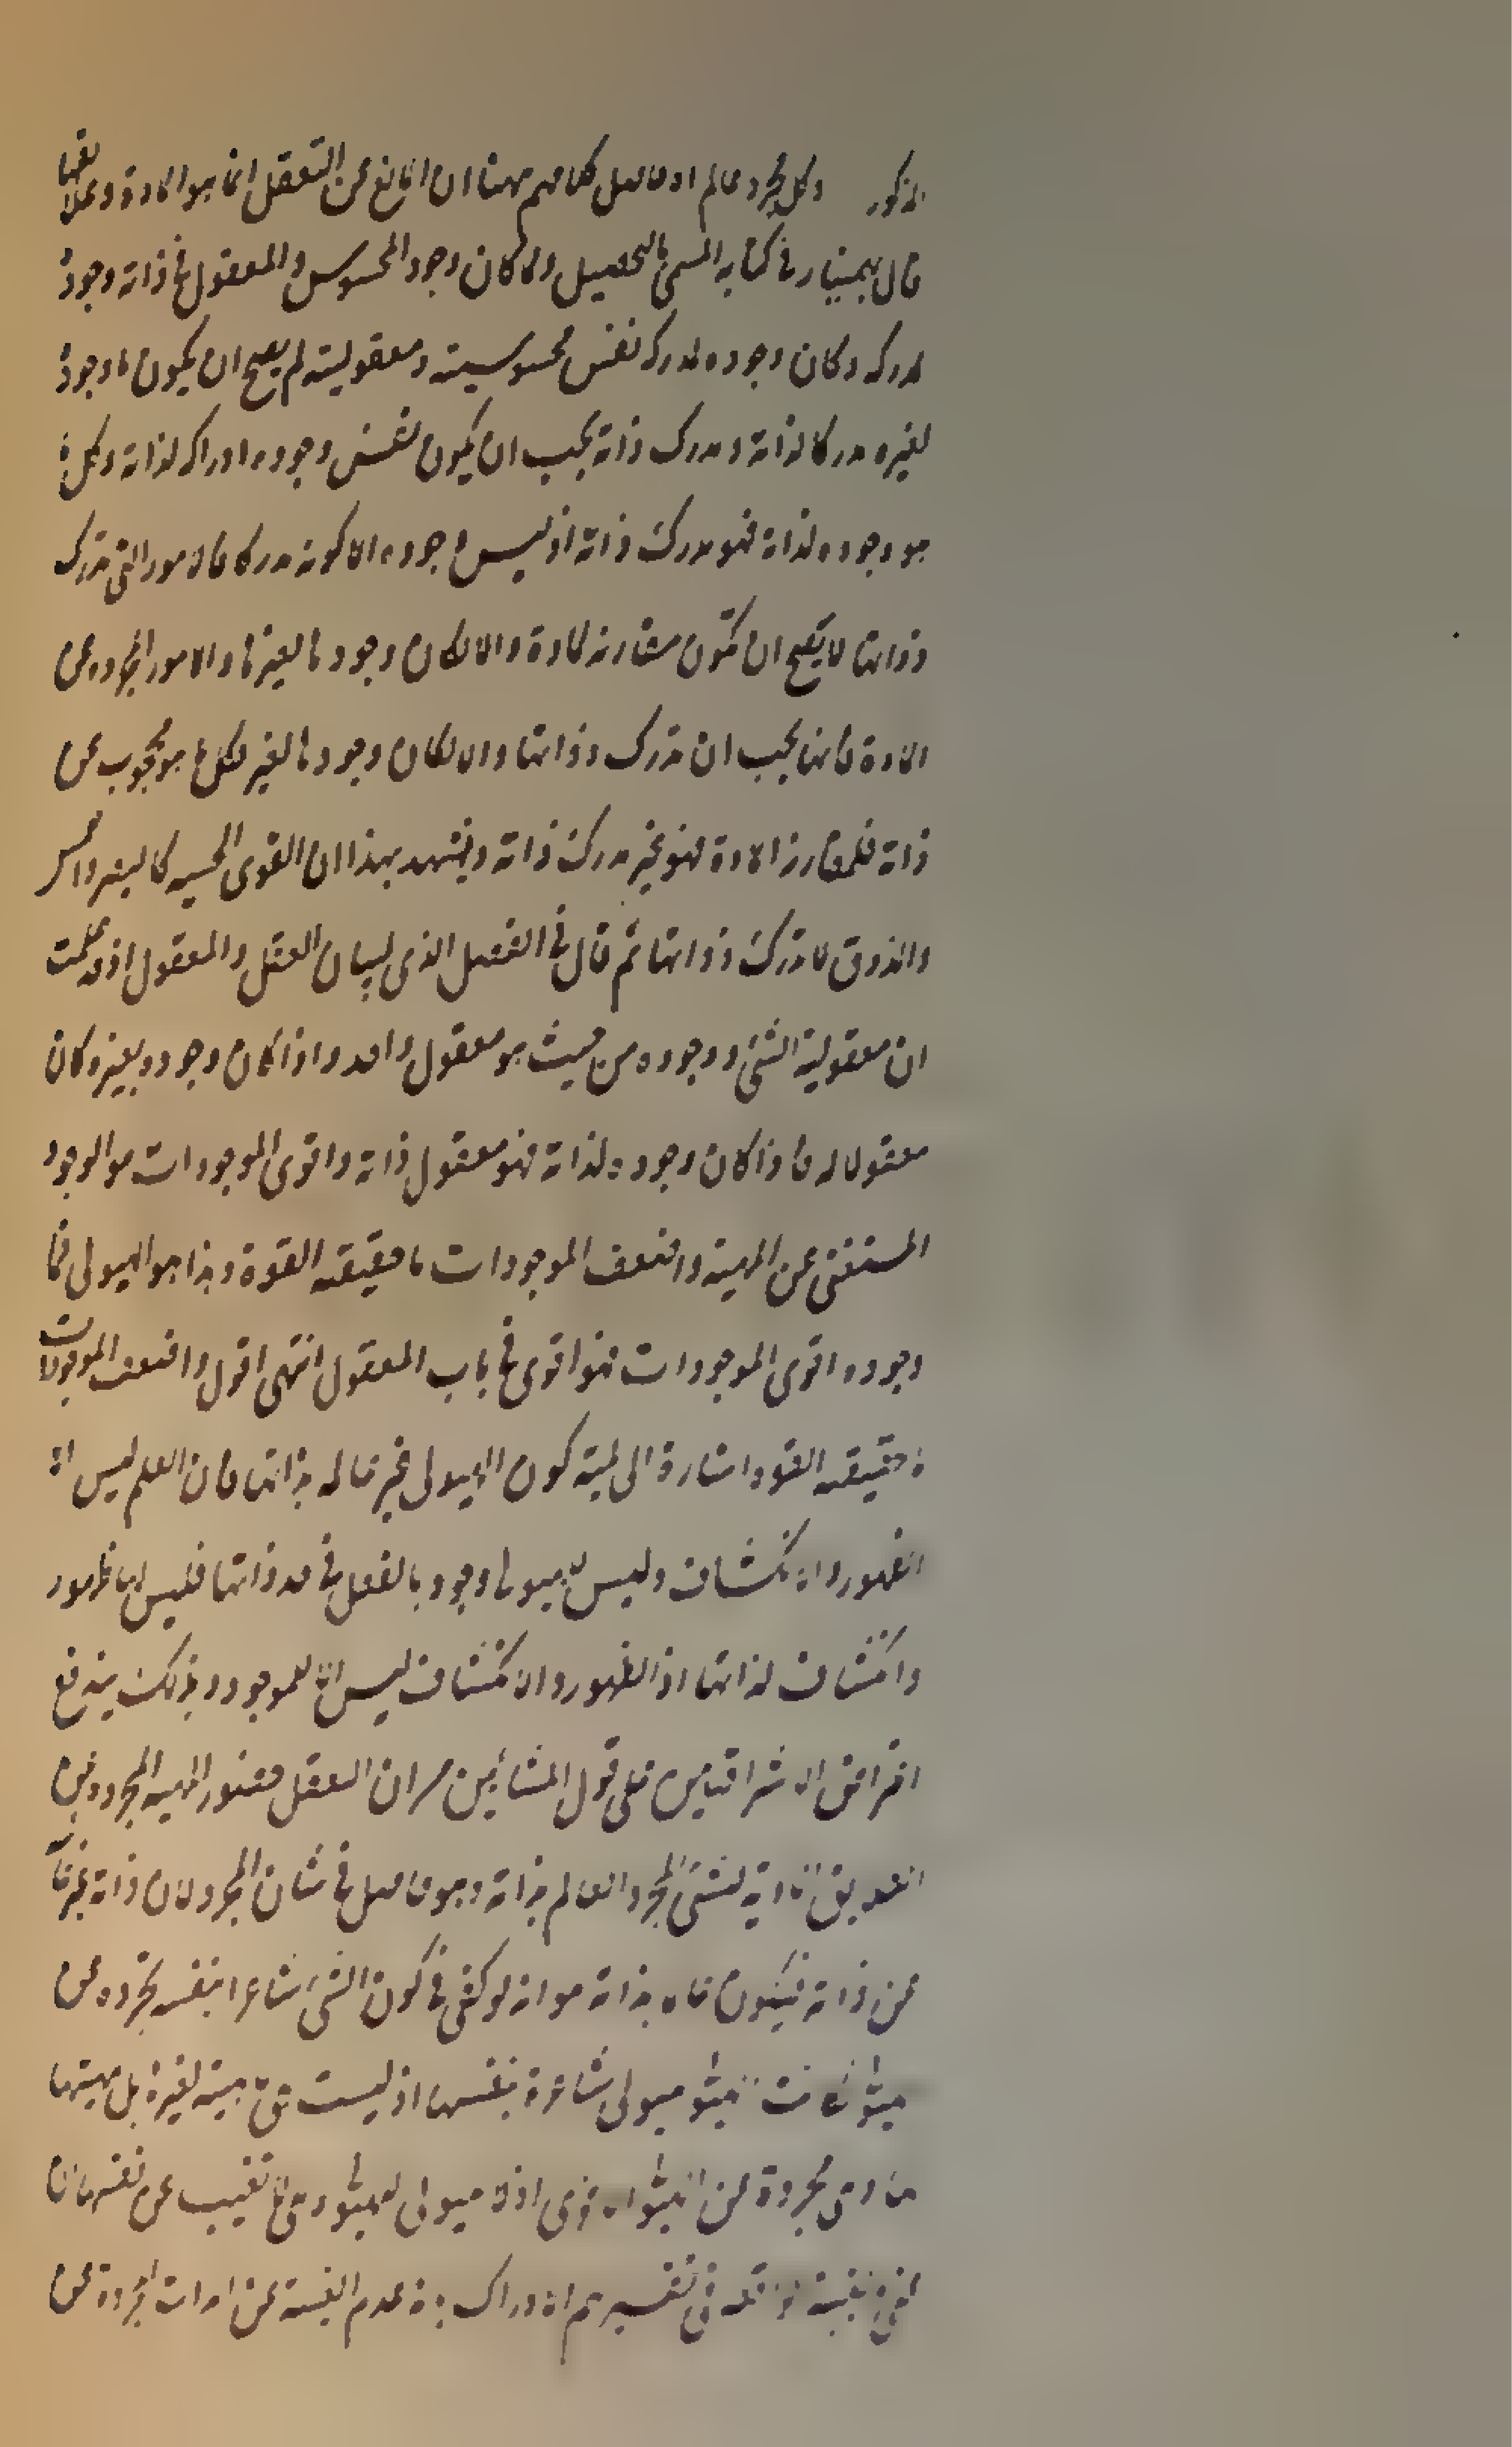 المذكور وكل مجرد عالم اذ حاصل كلامهم ههنا ان المانع عن التعقل انما هو المادة وعلايقها
قال بهمنيار في كتابه المسمى بالتحصيل ولما كان وجود المحسوس والمعقول في ذاته وجوده
لمدركه وكان وجوده لمدركه نفس محسوسيته ومعقوليته لم يصح ان يكون ما وجوده
لغيره مدركا لذاته ومدرك ذاته يجب ان يكون نفس وجوده ادراكه لذاته وكل ما
هو وجوده لذاته فهو مدرك ذاته اذ ليس وجوده الا كونه مدركا فالامور التي تدرك
ذواتها لا يصح ان تكون مقارنة لمادة والا لكان وجودها لغيرها والامور المجردة عن
المادة فانها يجب ان تدرك ذواتها والا لكان وجودها لغير فكل ما هو محجوب عن
ذاته فلمقارنة المادة فهو غير مدرك ذاته ويشهد بهذا ان القوى الحسية كالبصر واللمس
والذوق لا تدرك ذواتها ثم قال في الفصل الذي لبيان العقل والمعقول اذ قد علمت
ان معقولية الشئ ووجوده من حيث هو معقول واحد واذا كان وجوده لغيره كان
معقولا له فاذا كان وجوده لذاته فهو معقول ذاته واقوى الموجودات هو الوجود
المستغنى عن المهية واضعف الموجودات ما حقيقته القوة وهذا هو الهيولى فما
وجوده اقوى الموجودات فهو اقوى في باب المعقول انتهى اقول واضعف الموجودات
ما حقيقته القوة اشارة الى لمية كون الهيولى غير عالمة بذاتها فان العلم ليس الا
الظهور والانكشاف وليس للهيولى وجود بالفعل في حد ذاتها فليس لها ظهور
وانكشاف لذاتها اذ الظهور والانكشاف ليس الا للموجود وبذلك يندفع
اعتراض الاشراقيين على قول المشائين من ان العقل حضور المهية المجردة عن
العلايق المادية لشئ المجرد العالم بذاته وهو حاصل في شان المجرد لان ذاته غير غائبة
عن ذاته فيكون عالما بذاته هو انه لو كفى في كون الشئ شاعرا بنفسه تجرده عن
هيولى شاعرة بنفسها اذ ليست هي هيئة لغيرها بل مهيتها
لها وهي مجردة عن اذ لا هيولى للهيولى وهي لا تغيب عن نفسها
في تفسيرهم الادراك عدم الغيبة عن الذات المجردة عن